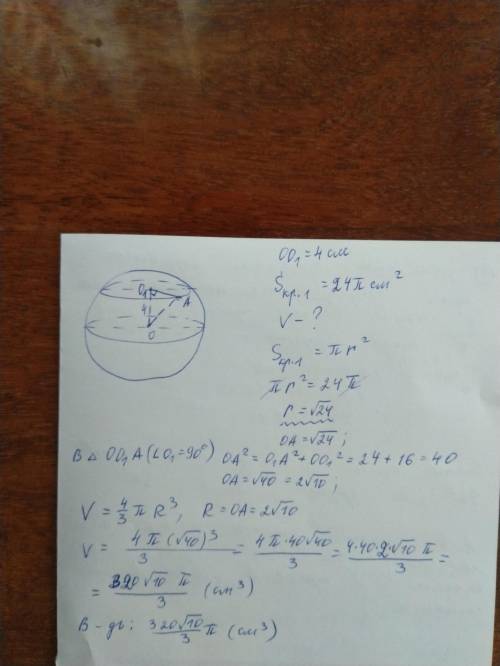 OO₁ = 4 см
Sкр.1 = 24π см²
V - ?
Sкр.1 = πr²
πr² = 24π
r = √24
OA = √24;
O₁
A
4
O
В △ OO₁A (∠O₁ = 90°) OA² = O₁A² + OO₁² = 24 + 16 = 40
OA = √40 = 2√10;
V = 4/3 π R³, R = OA = 2√10
V = 4π(√40)³/3 = 4π·40√40/3 = 4·40·2√10 π/3 =
= 320√10 π/3 (см³)
В-дь: 320√10/3 π (см³)